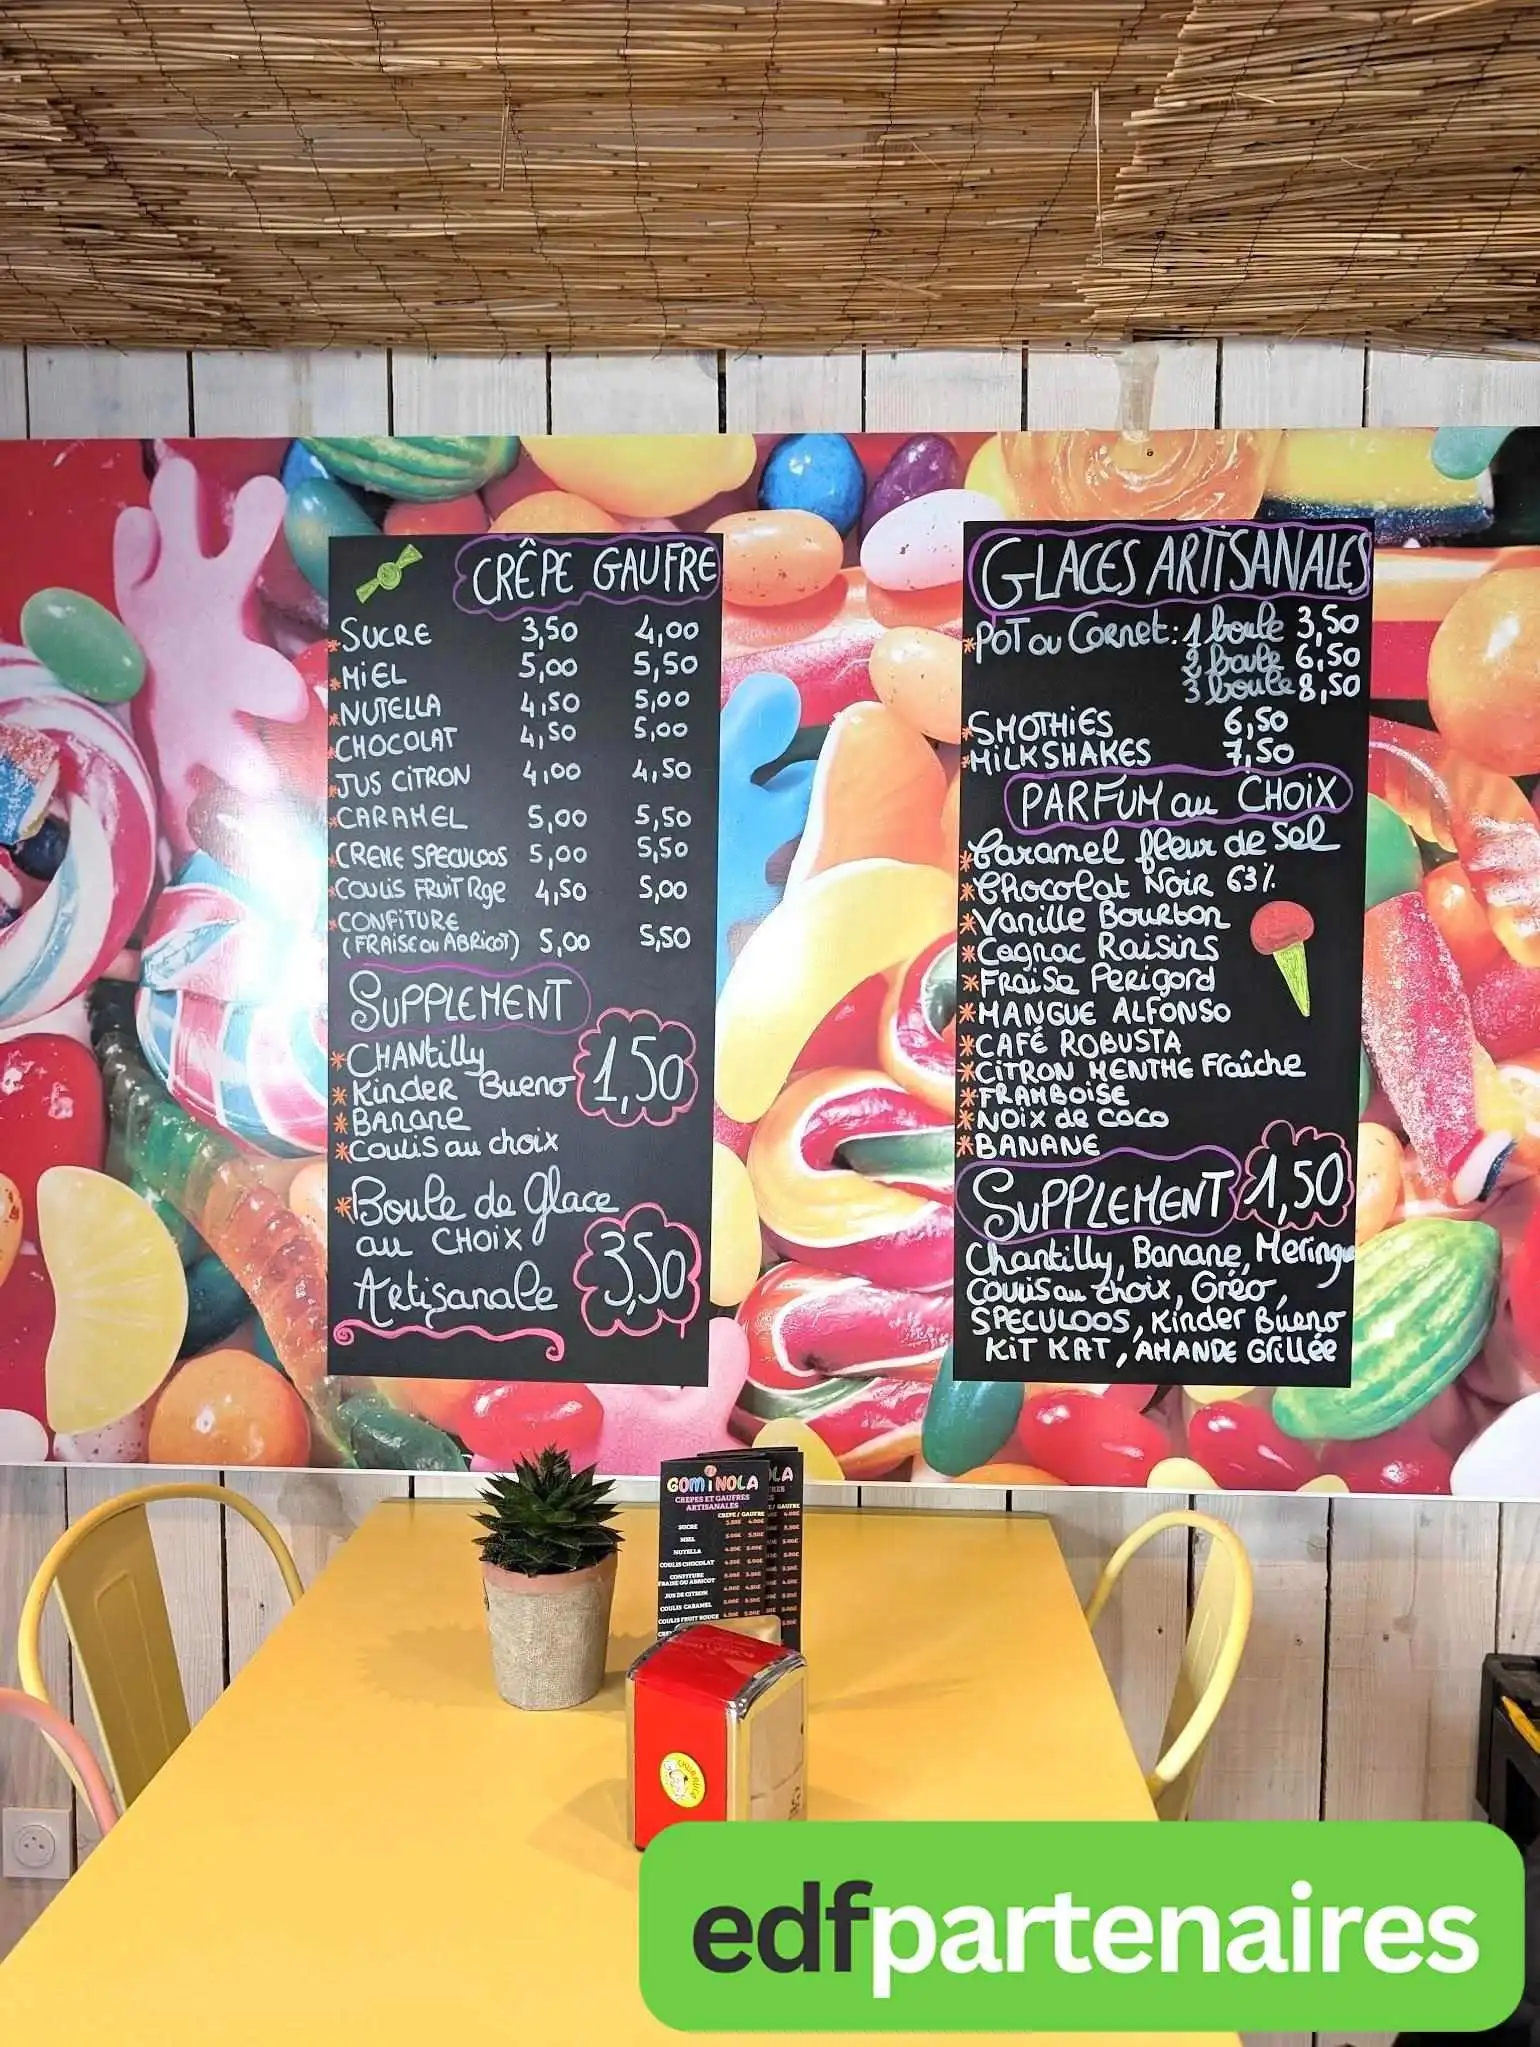 CRÊPE GAUFRE
*SUCRE 3,50 4,00
*MiEL 5,00 5,50
*NUTELLA 4,50 5,00
*CHOCOLAT 4,50 5,00
*JUS CiTRON 4,00 4,50
*CARAMEL 5,00 5,50
*CREME SPECULOOS 5,00 5,50
*COULIS FRUiT Rge 4,50 5,00
*CONFiTURE
(FRAISE ou ABRICOT) 5,00 5,50
SUPPLEMENT
1,50
*CHANtilly
*Kinder Bueno
*Banane
*Coulis au choix
*Boule de Glace
au CHOIX
Artisanale
3,50
GLACES ARTiSANALES
*POT ou Cornet: 1 boule 3,50
2 boule 6,50
3 boule 8,50
*SMOTHiES 6,50
*MiLKSHAKES 7,50
PARFUM au CHOiX
*Caramel fleur de Sel
*Chocolat Noir 63%
*Vanille Bourbon
*Cognac Raisins
*Fraise Perigord
*MANGUE ALFONSO
*CAFÉ ROBUSTA
*CiTRON MENTHE Fraîche
*FRAMBOiSE
*NOiX de COCO
*BANANE
SUPPLEMENT 1,50
Chantilly, Banane, Meringue
Coulis au choix, Oréo,
SPECULOOS, Kinder Bueno
KiT KAT, AMANDE Grillée
GOMiNOLA
CREPES ET GAUFRES
ARTISANALES
CREPE / GAUFRE
SUCRE 3.50€ 4.00€
MIEL 5.00€ 5.50€
NUTELLA 4.50€ 5.00€
COULIS CHOCOLAT 4.50€ 5.00€
CONFITURE
FRAISE OU ABRICOT
JUS DE CITRON 4.00€ 4.50€
COULIS CARAMEL 5.00€ 5.50€
COULIS FRUIT ROUGE 4.50€ 5.00€
edfpartenaires